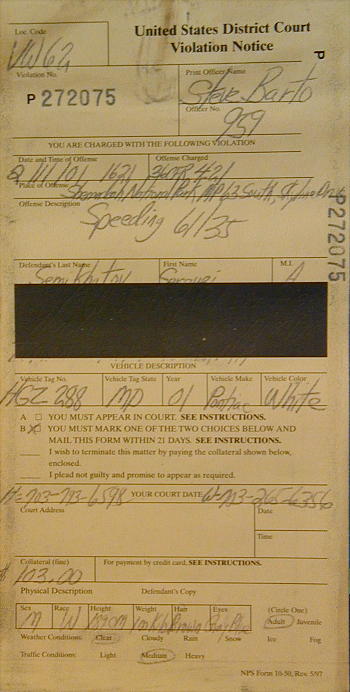 Loc. Code
United States District Court
Violation Notice
VW62
P
Violation No.
Print Officer Name
P 272075
Steve Barto
Officer No.
959
YOU ARE CHARGED WITH THE FOLLOWING VIOLATION
Date and Time of Offense Offense Charged
1/1/01 1621 36CFR 4.21
Place of Offense
Shenandoah National Park, MP 63 South,
Offense Description
Speeding 61/35
P272075
Defendant's Last Name First Name M.I.
A
VEHICLE DESCRIPTION
Vehicle Tag No. Vehicle Tag State Year Vehicle Make Vehicle Color
HGZ 288 MD 01 Pontiac White
A ☐ YOU MUST APPEAR IN COURT. SEE INSTRUCTIONS.
B ☒ YOU MUST MARK ONE OF THE TWO CHOICES BELOW AND
MAIL THIS FORM WITHIN 21 DAYS. SEE INSTRUCTIONS.
I wish to terminate this matter by paying the collateral shown below,
enclosed.
I plead not guilty and promise to appear as required.
YOUR COURT DATE
Court Address Date
Time
Collateral (fine) For payment by credit card, SEE INSTRUCTIONS.
$ 103.00
Physical Description Defendant's Copy
Sex Race Height Weight Hair Eyes (Circle One)
M W Brown Adult Juvenile
Weather Conditions: Clear Cloudy Rain Snow Ice Fog
Traffic Conditions: Light Medium Heavy
NPS Form 10-50, Rev. 5/97